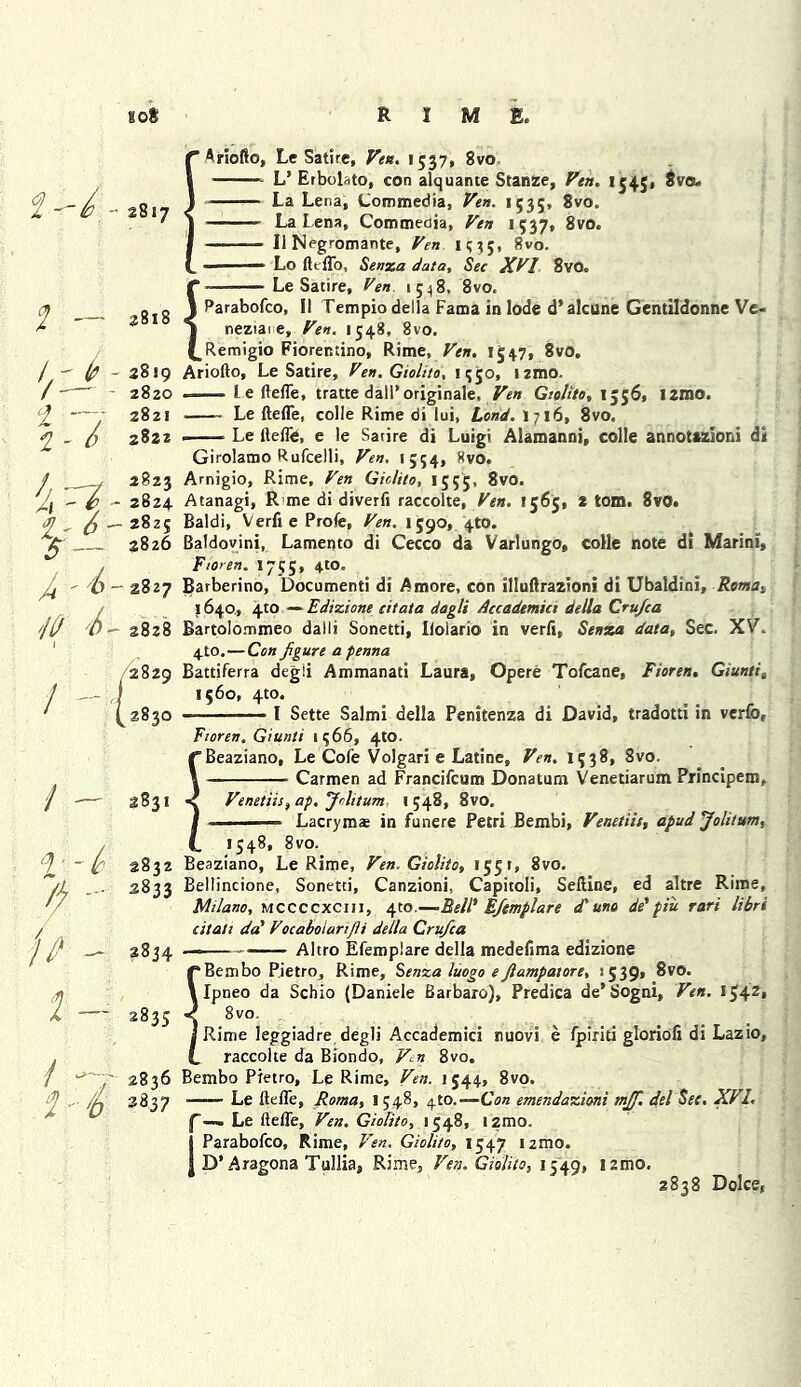 108 R I M E.
2-6 - 2817 Ariosto, Le Satire, Ven. 1537, 8vo
—— L' Erbolato, con alquante Stanze, Ven. 1545, 8vo.
—— La Lena, Commedia, Ven. 1535, 8vo.
—— La Lena, Commedia, Ven 1537, 8vo.
—— Il Negromante, Ven 1535, 8vo.
—— Lo steſſo, Senza data, Sec XVI 8vo.
2 — 2818 —— Le Satire, Ven 1548, 8vo.
Paraboſco, Il Tempio della Fama in lode d'alcune Gentildonne Ve-
neziane, Ven. 1548, 8vo.
Remigio Fiorentino, Rime, Ven. 1547, 8vo.
1-6 - 2819 Arioſto, Le Satire, Ven. Giolito, 1550, 12mo.
1 — 2820 —— Le ſteſſe, tratte dall'originale, Ven Giolito, 1556, 12mo.
2 — 2821 —— Le ſteſſe, colle Rime di lui, Lond. 1716, 8vo.
2-6 2822 —— Le ſteſſe, e le Satire di Luigi Alamanni, colle annotazioni di
Girolamo Ruſcelli, Ven. 1554, 8vo.
1 — 2823 Arnigio, Rime, Ven Giolito, 1555, 8vo.
4-6 - 2824 Atanagi, Rime di diverſi raccolte, Ven. 1565, 2 tom. 8vo.
2-6 — 2825 Baldi, Verſi e Proſe, Ven. 1590, 4to.
5 — 2826 Baldovini, Lamento di Cecco da Varlungo, colle note di Marini,
Fioren. 1755, 4to.
4-6 — 2827 Barberino, Documenti di Amore, con illuſtrazioni di Ubaldini, Roma,
1640, 4to — Edizione citata dagli Accademici della Cruſca
10 6 - 2828 Bartolommeo dalli Sonetti, Iſolario in verſi, Senza data, Sec. XV.
4to.—Con figure a penna
1 — 2829 Battiferra degli Ammanati Laura, Opere Toſcane, Fioren. Giunti,
1560, 4to.
2830 ——— I Sette Salmi della Penitenza di David, tradotti in verſo,
Fioren. Giunti 1566, 4to.
Beaziano, Le Coſe Volgari e Latine, Ven. 1538, 8vo.
——— Carmen ad Franciſcum Donatum Venetiarum Principem,
1 — 2831 Venetiis, ap. Jolitum, 1548, 8vo.
——— Lacrymæ in funere Petri Bembi, Venetiis, apud Jolitum,
1548, 8vo.
2-6 2832 Beaziano, Le Rime, Ven. Giolito, 1551, 8vo.
2833 Bellincione, Sonetti, Canzioni, Capitoli, Seſtine, ed altre Rime,
Milano, MCCCCXCIII, 4to.—Bell' Eſemplare d'uno de' più rari libri
citati da' Vocabolariſti della Cruſca
10 — 2834 ——— Altro Eſemplare della medeſima edizione
Bembo Pietro, Rime, Senza luogo e ſtampatore, 1539, 8vo.
Ipneo da Schio (Daniele Barbaro), Predica de' Sogni, Ven. 1542,
2 — 2835 8vo.
Rime leggiadre degli Accademici nuovi è ſpiriti glorioſi di Lazio,
raccolte da Biondo, Ven 8vo.
1 — 2836 Bembo Pietro, Le Rime, Ven. 1544, 8vo.
2-6 2837 —— Le ſteſſe, Roma, 1548, 4to.—Con emendazioni mſſ. del Sec. XVI.
— Le ſteſſe, Ven. Giolito, 1548, 12mo.
Paraboſco, Rime, Ven. Giolito, 1547 12mo.
D' Aragona Tullia, Rime, Ven. Giolito, 1549, 12mo.
2838 Dolce,